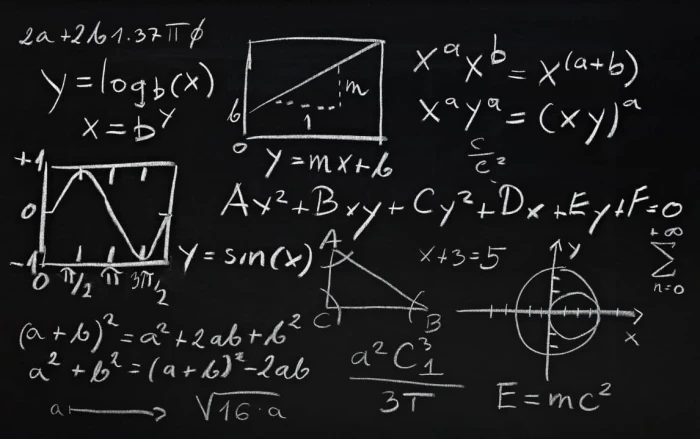 2a+2b1.37πφ
y=log_b(x)
x=b^y
b
m
1
0
y=mx+b
x^a x^b = x^(a+b)
x^a y^a = (xy)^a
c/c²
Ax²+Bxy+Cy²+Dx+Ey+F=0
+1
0
-1
0 π/2 π 3π/2
y=sin(x)
A
C
B
x+3=5
y
x
+∞
∑
n=0
(a+b)²=a²+2ab+b²
a²+b²=(a+b)²-2ab
a → √16·a
a²C₁³
3T
E=mc²